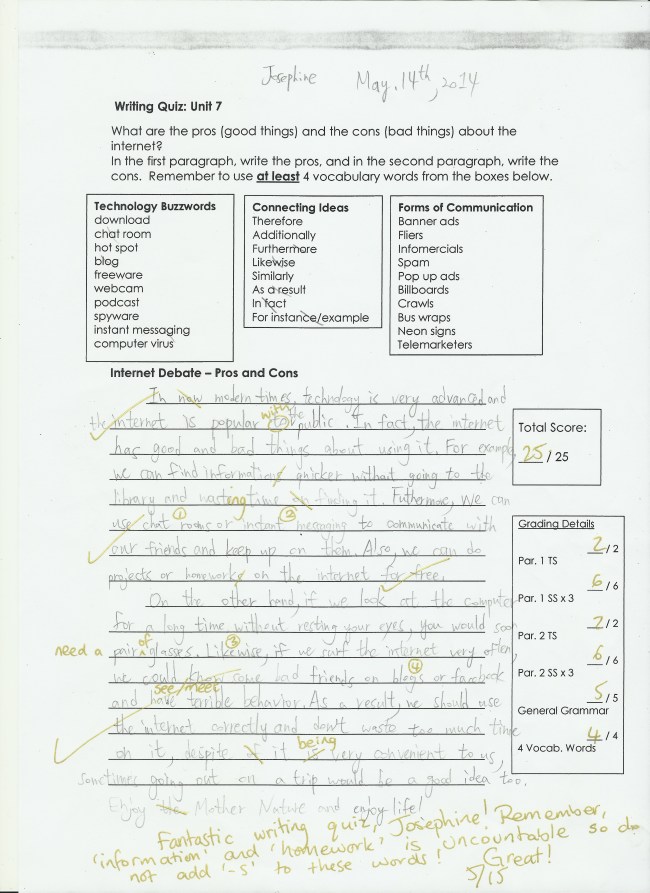 Josephine May. 14th, 2014
Writing Quiz: Unit 7
What are the pros (good things) and the cons (bad things) about the
internet?
In the first paragraph, write the pros, and in the second paragraph, write the
cons. Remember to use at least 4 vocabulary words from the boxes below.
Technology Buzzwords
download
chat room
hot spot
blog
freeware
webcam
podcast
spyware
instant messaging
computer virus
Connecting Ideas
Therefore
Additionally
Furthermore
Likewise
Similarly
As a result
In fact
For instance/example
Forms of Communication
Banner ads
Fliers
Infomercials
Spam
Pop up ads
Billboards
Crawls
Bus wraps
Neon signs
Telemarketers
Internet Debate – Pros and Cons
In now modern times, technology is very advanced and
with
the internet is popular to the public. In fact, the internet
has good and bad things about using it. For example,
we can find informations quicker without going to the
library and wasting time on finding it. Futhermore, we can
① ②
use chat rooms or instant messaging to communicate with
our friends and keep up on them. Also, we can do
projects or homeworks on the internet for free.
On the other hand, if we look at the computer
for a long time without resting your eyes, you would soon
need a pair of glasses. Likewise, if we surf the internet very often,
③ ④
we could know some bad friends on blogs or facebook
see/meet
and have terrible behavior. As a result, we should use
the internet correctly and don't waste too much time
being
on it, despite it is very convenient to us,
sometimes going out on a trip would be a good idea too.
Enjoy the Mother Nature and enjoy life!
Total Score:
25 / 25
Grading Details
2 / 2
Par. 1 TS
6 / 6
Par. 1 SS x 3
2 / 2
Par. 2 TS
6 / 6
Par. 2 SS x 3
5 / 5
General Grammar
4 / 4
4 Vocab. Words
Fantastic writing quiz, Josephine! Remember,
'information' and 'homework' is uncountable so do
not add '-s' to these words! Great!
5/15